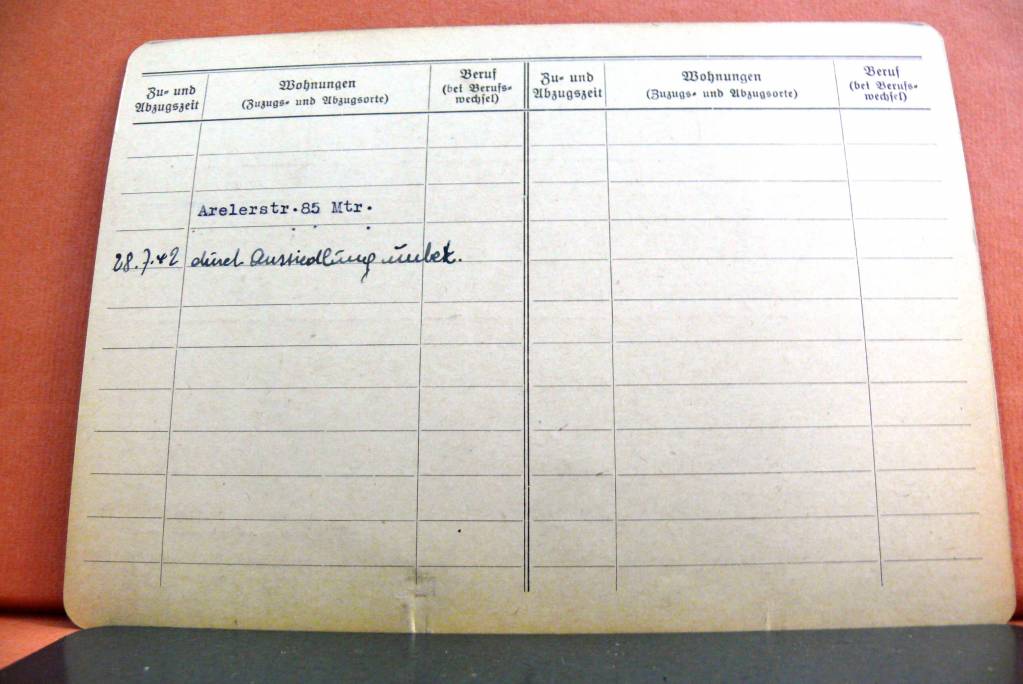 Zu- und Abzugszeit
Wohnungen
(Zuzugs- und Abzugsorte)
Beruf
(bei Berufs-
wechsel)
Zu- und
Abzugszeit
Wohnungen
(Zuzugs- und Abzugsorte)
Beruf
(bei Berufs-
wechsel)
Arelerstr.85 Mtr.
28.7.42 durch Aussiedlung unbek.